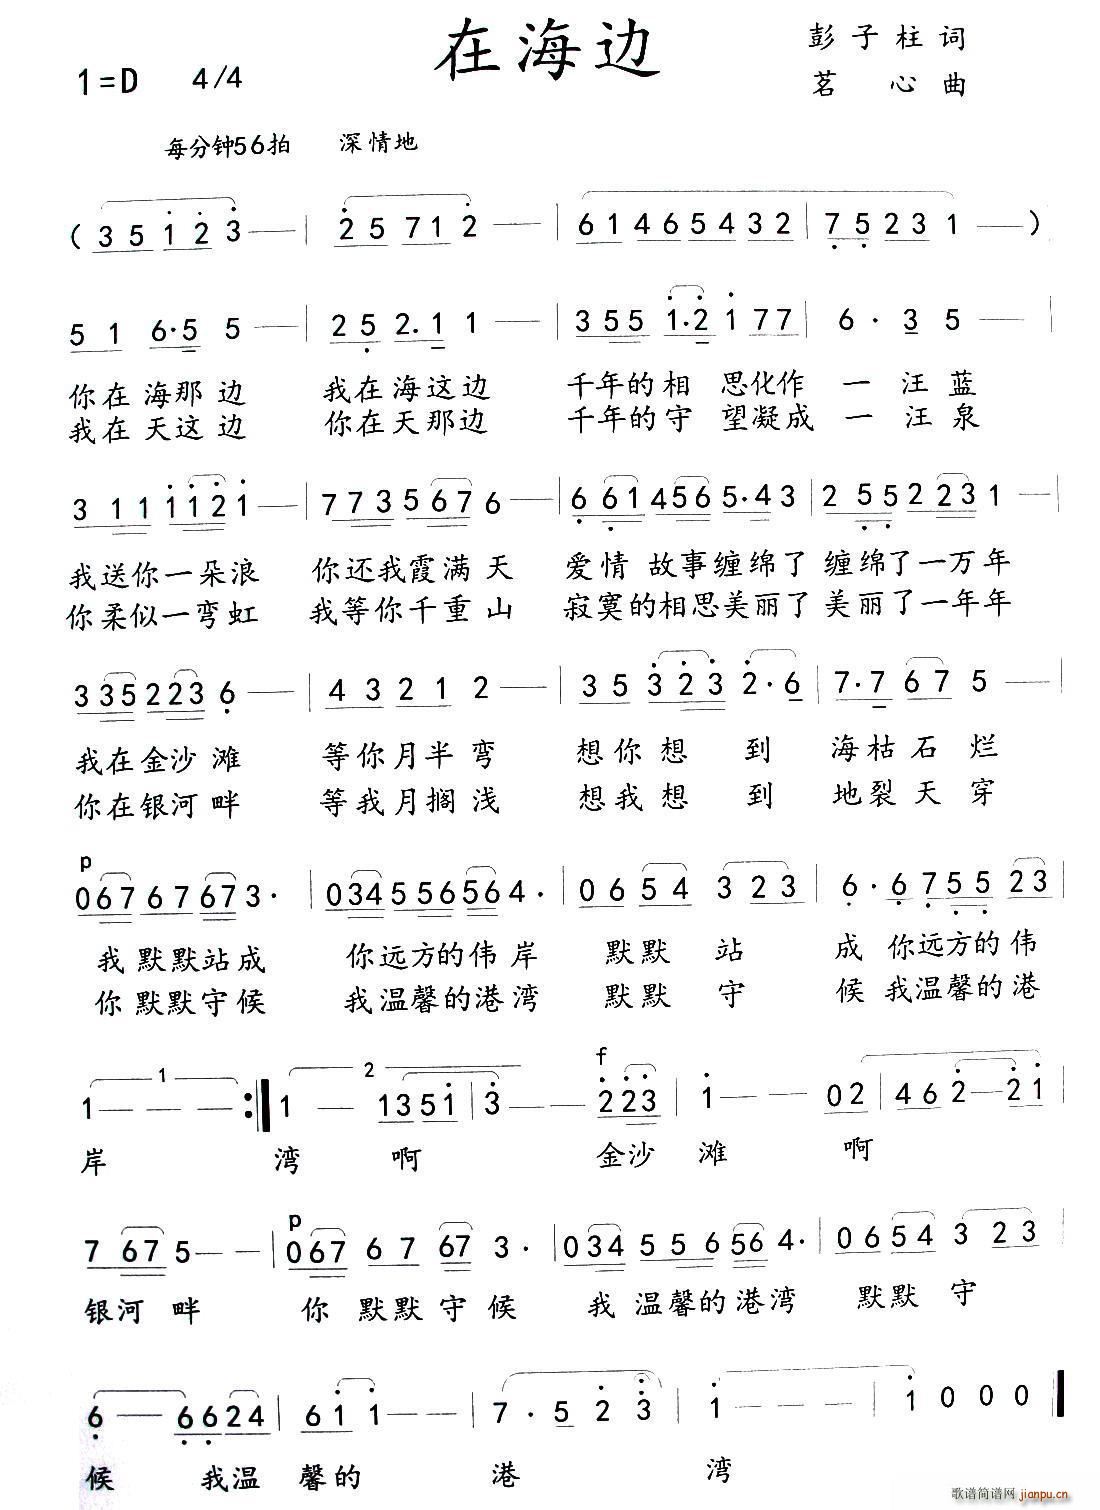 在海边
彭子柱词
1=D 4/4
茗 心曲
每分钟56拍 深情地
( 3 5 1 2 3 — | 2 5 7 1 2 — | 6 1 4 6 5 4 3 2 | 7 5 2 3 1 — )
5 1 6·5 5 — | 2 5 2.1 1 — | 3 5 5 1·2 1 7 7 | 6· 3 5 — |
你在海那边 我在海这边 千年的相 思化作 一 汪蓝
我在天这边 你在天那边 千年的守 望凝成 一 汪泉
3 1 1 1 1 2 1 | 7 7 3 5 6 7 6 — | 6 6 1 4 5 6 5·4 3 | 2 5 5 2 2 3 1 — |
我送你一朵浪 你还我霞满天 爱情 故事缠绵了 缠绵了一万年
你柔似一弯虹 我等你千重山 寂寞的相思美丽了 美丽了一年年
3 3 5 2 2 3 6 — | 4 3 2 1 2 — | 3 5 3 2 3 2·6 | 7·7 6 7 5 — |
我在金沙滩 等你月半弯 想你想 到 海枯石烂
你在银河畔 等我月搁浅 想我想 到 地裂天穿
p
0 6 7 6 7 6 7 3· | 0 3 4 5 5 6 5 6 4· | 0 6 5 4 3 2 3 | 6· 6 7 5 5 2 3 |
我默默站成 你远方的伟岸 默默 站 成 你远方的伟
你默默守候 我温馨的港湾 默默 守 候 我温馨的港
1 2 f
1 — — — :‖ 1 — 1 3 5 1 | 3 — — 2 2 3 | 1 — — 0 2 | 4 6 2 — 2 1 |
岸 湾 啊 金沙 滩 啊
p
7 6 7 5 — — | 0 6 7 6 7 6 7 3· | 0 3 4 5 5 6 5 6 4· | 0 6 5 4 3 2 3 |
银河 畔 你 默默守候 我 温馨的港湾 默默 守
6 — — 6 6 2 4 | 6 1 1 — — | 7· 5 2 3 | 1 — — — | 1 0 0 0 ‖
候 我温 馨的 港 湾
歌谱简谱网
jianpu.cn